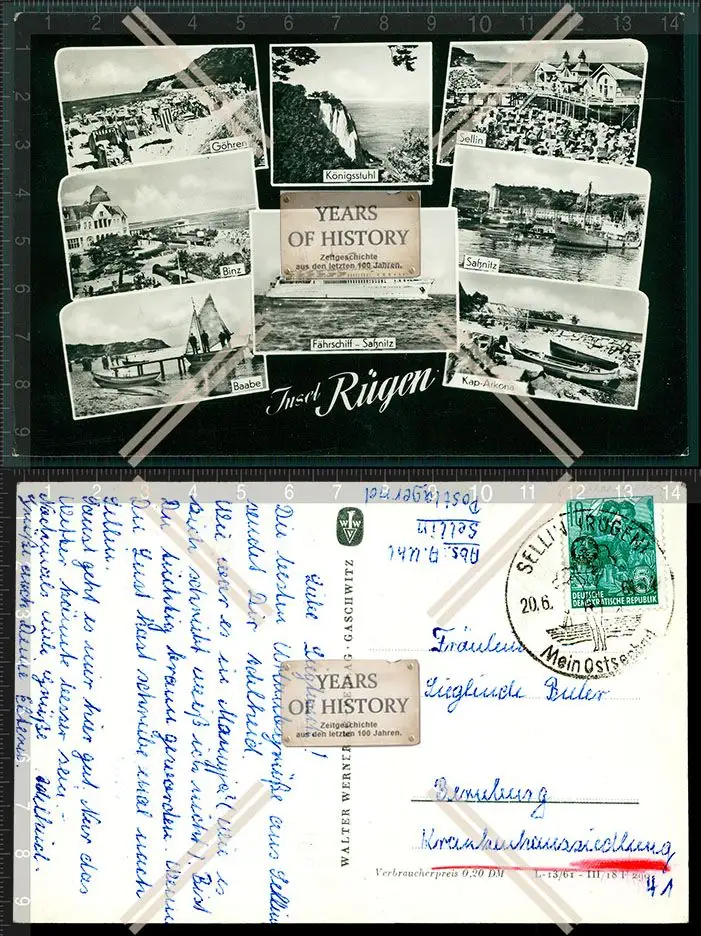 Göhren
Königsstuhl
Sellin
Binz
Saßnitz
Baabe
Fährschiff - Saßnitz
Kap-Arkona
Insel Rügen
YEARS
OF HISTORY
Zeitgeschichte
aus den letzten 100 Jahren.
Abs: A. Uhl
Sellin
Postlagernd
Liebe Sieglinde!
Die besten Urlaubsgrüße aus Sellin
sendet Dir Adelheid.
Wie war es in Wie es
auch schreibt weiß ich nicht! Bist
Du tüchtig braun geworden. Wenn
Du Lust hast schreibe mal nach
Sellin.
Sonst geht es mir hier gut. Nur das
Wetter könnte besser sein.-
Nochmals viele Grüße Adelheid.
Grüße auch Deine Eltern.
WALTER WERNER VERLAG · GASCHWITZ
SELLIN (RÜGEN)
20.6.
Mein Ostseebad
5
DEUTSCHE
DEMOKRATISCHE REPUBLIK
Fräulein
Sieglinde
Bernburg
Krankenhaussiedlung
41
Verbraucherpreis 0,20 DM
L-13/61 - III/18
YEARS
OF HISTORY
Zeitgeschichte
aus den letzten 100 Jahren.